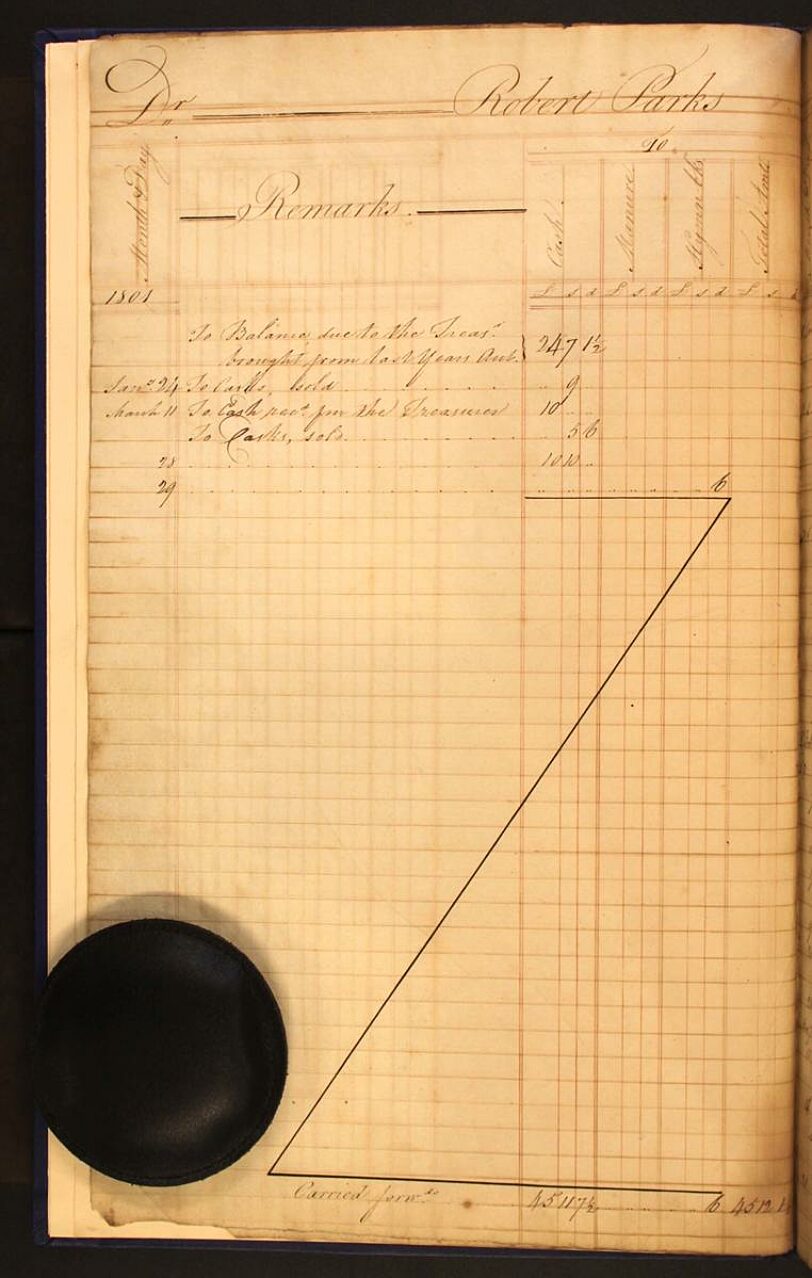 Dr Robert Parks
To
Month & Day
Remarks.
Cash
Manure
Hymn Bks
Total Amt
1801
£ s d £ s d £ s d £ s
To Balance due to the Treasr
brought from last Years Act. 24 7 1½
Jany 24 To Casks, sold .. 9 ..
March 11 To Cash recd pr the Treasurer 10 .. ..
To Casks, sold .. 5 6
28 10 10 ..
29 6
Carried forwd 45 11 7½ 6 45 12 1½